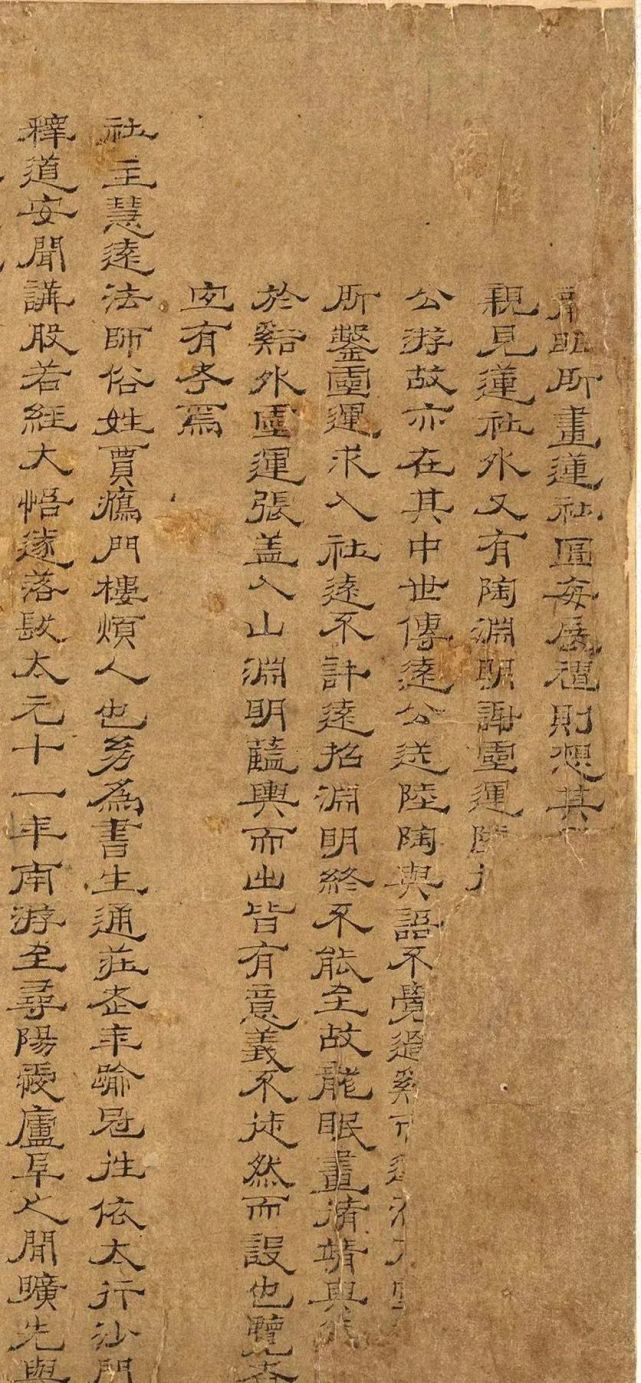 龍眠所畫蓮社圖每展禮則想其
親見蓮社外又有陶淵明謝靈運陸
公游故亦在其中世傳遠公送陸陶與語不覺過谿
所鑒靈運求入社遠不許遠招淵明終不能至故龍眠畫脩靖與
於谿外靈運張蓋入山淵明藍輿而出皆有意義不徒然而設也覽者
宜有考焉
社主慧遠法師俗姓賈鴈門樓煩人也幼為書生通莊老年踰冠往依太行沙門
釋道安聞講般若經大悟遂落髮太元十一年南游至尋陽愛廬阜之閒曠先與